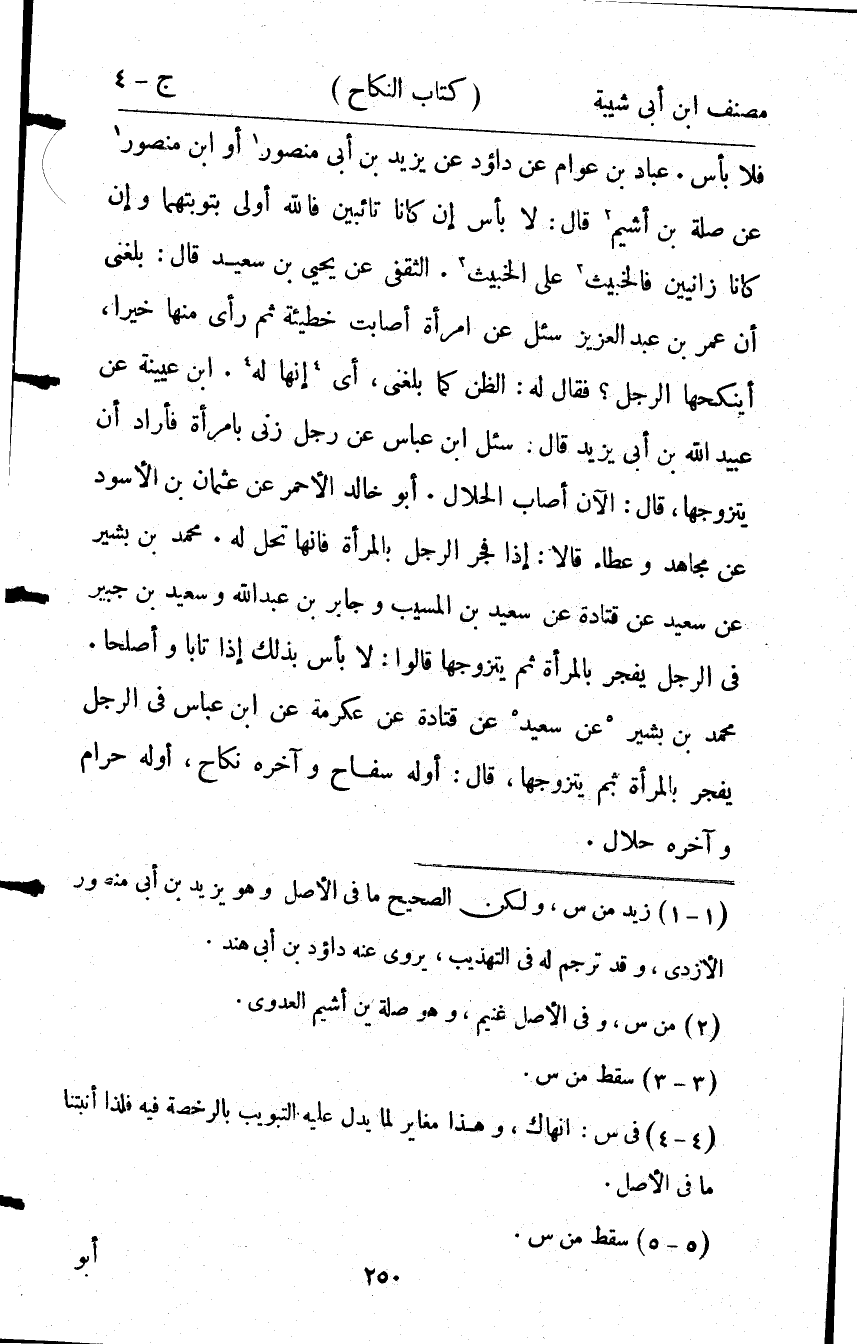 مصنف ابن أبى شيبة ( كتاب النكاح ) ج - ٤
فلا بأس . عباد بن عوام عن داؤد عن يزيد بن أبى منصور١ أو ابن منصور١
عن صلة بن أشيم٢ قال : لا بأس إن كانا تائبين فالله أولى بتوبتهما و إن
كانا زانيين فالخبيث٣ على الخبيث٣ . الثقفى عن يحيى بن سعيد قال : بلغنى
أن عمر بن عبد العزيز سئل عن امرأة أصابت خطيئة ثم رأى منها خيرا ،
أينكحها الرجل ؟ فقال له : الظن كما بلغنى ، أى ٤إنها له٤ . ابن عيينة عن
عبيد الله بن أبى يزيد قال : سئل ابن عباس عن رجل زنى بامرأة فأراد أن
يتزوجها ، قال : الآن أصاب الحلال . أبو خالد الأحمر عن عثمان بن الأسود
عن مجاهد و عطاء قالا : إذا فجر الرجل بالمرأة فانها تحل له . محمد بن بشير
عن سعيد عن قتادة عن سعيد بن المسيب و جابر بن عبدالله و سعيد بن جبير
فى الرجل يفجر بالمرأة ثم يتزوجها قالوا : لا بأس بذلك إذا تابا و أصلحا .
محمد بن بشير ٥عن سعيد٥ عن قتادة عن عكرمة عن ابن عباس فى الرجل
يفجر بالمرأة ثم يتزوجها ، قال : أوله سفاح و آخره نكاح ، أوله حرام
و آخره حلال .
(١-١) زيد من س ، و لكن الصحيح ما فى الأصل و هو يزيد بن أبى منصور
الأزدى ، و قد ترجم له فى التهذيب ، يروى عنه داؤد بن أبى هند .
(٢) من س ، و فى الأصل غنيم ، و هو صلة بن أشيم العدوى .
(٣-٣) سقط من س .
(٤-٤) فى س : انهاك ، و هذا مغاير لما يدل عليه التبويب بالرخصة فيه فلذا أثبتنا
ما فى الأصل .
(٥-٥) سقط من س .
٢٥٠ أبو